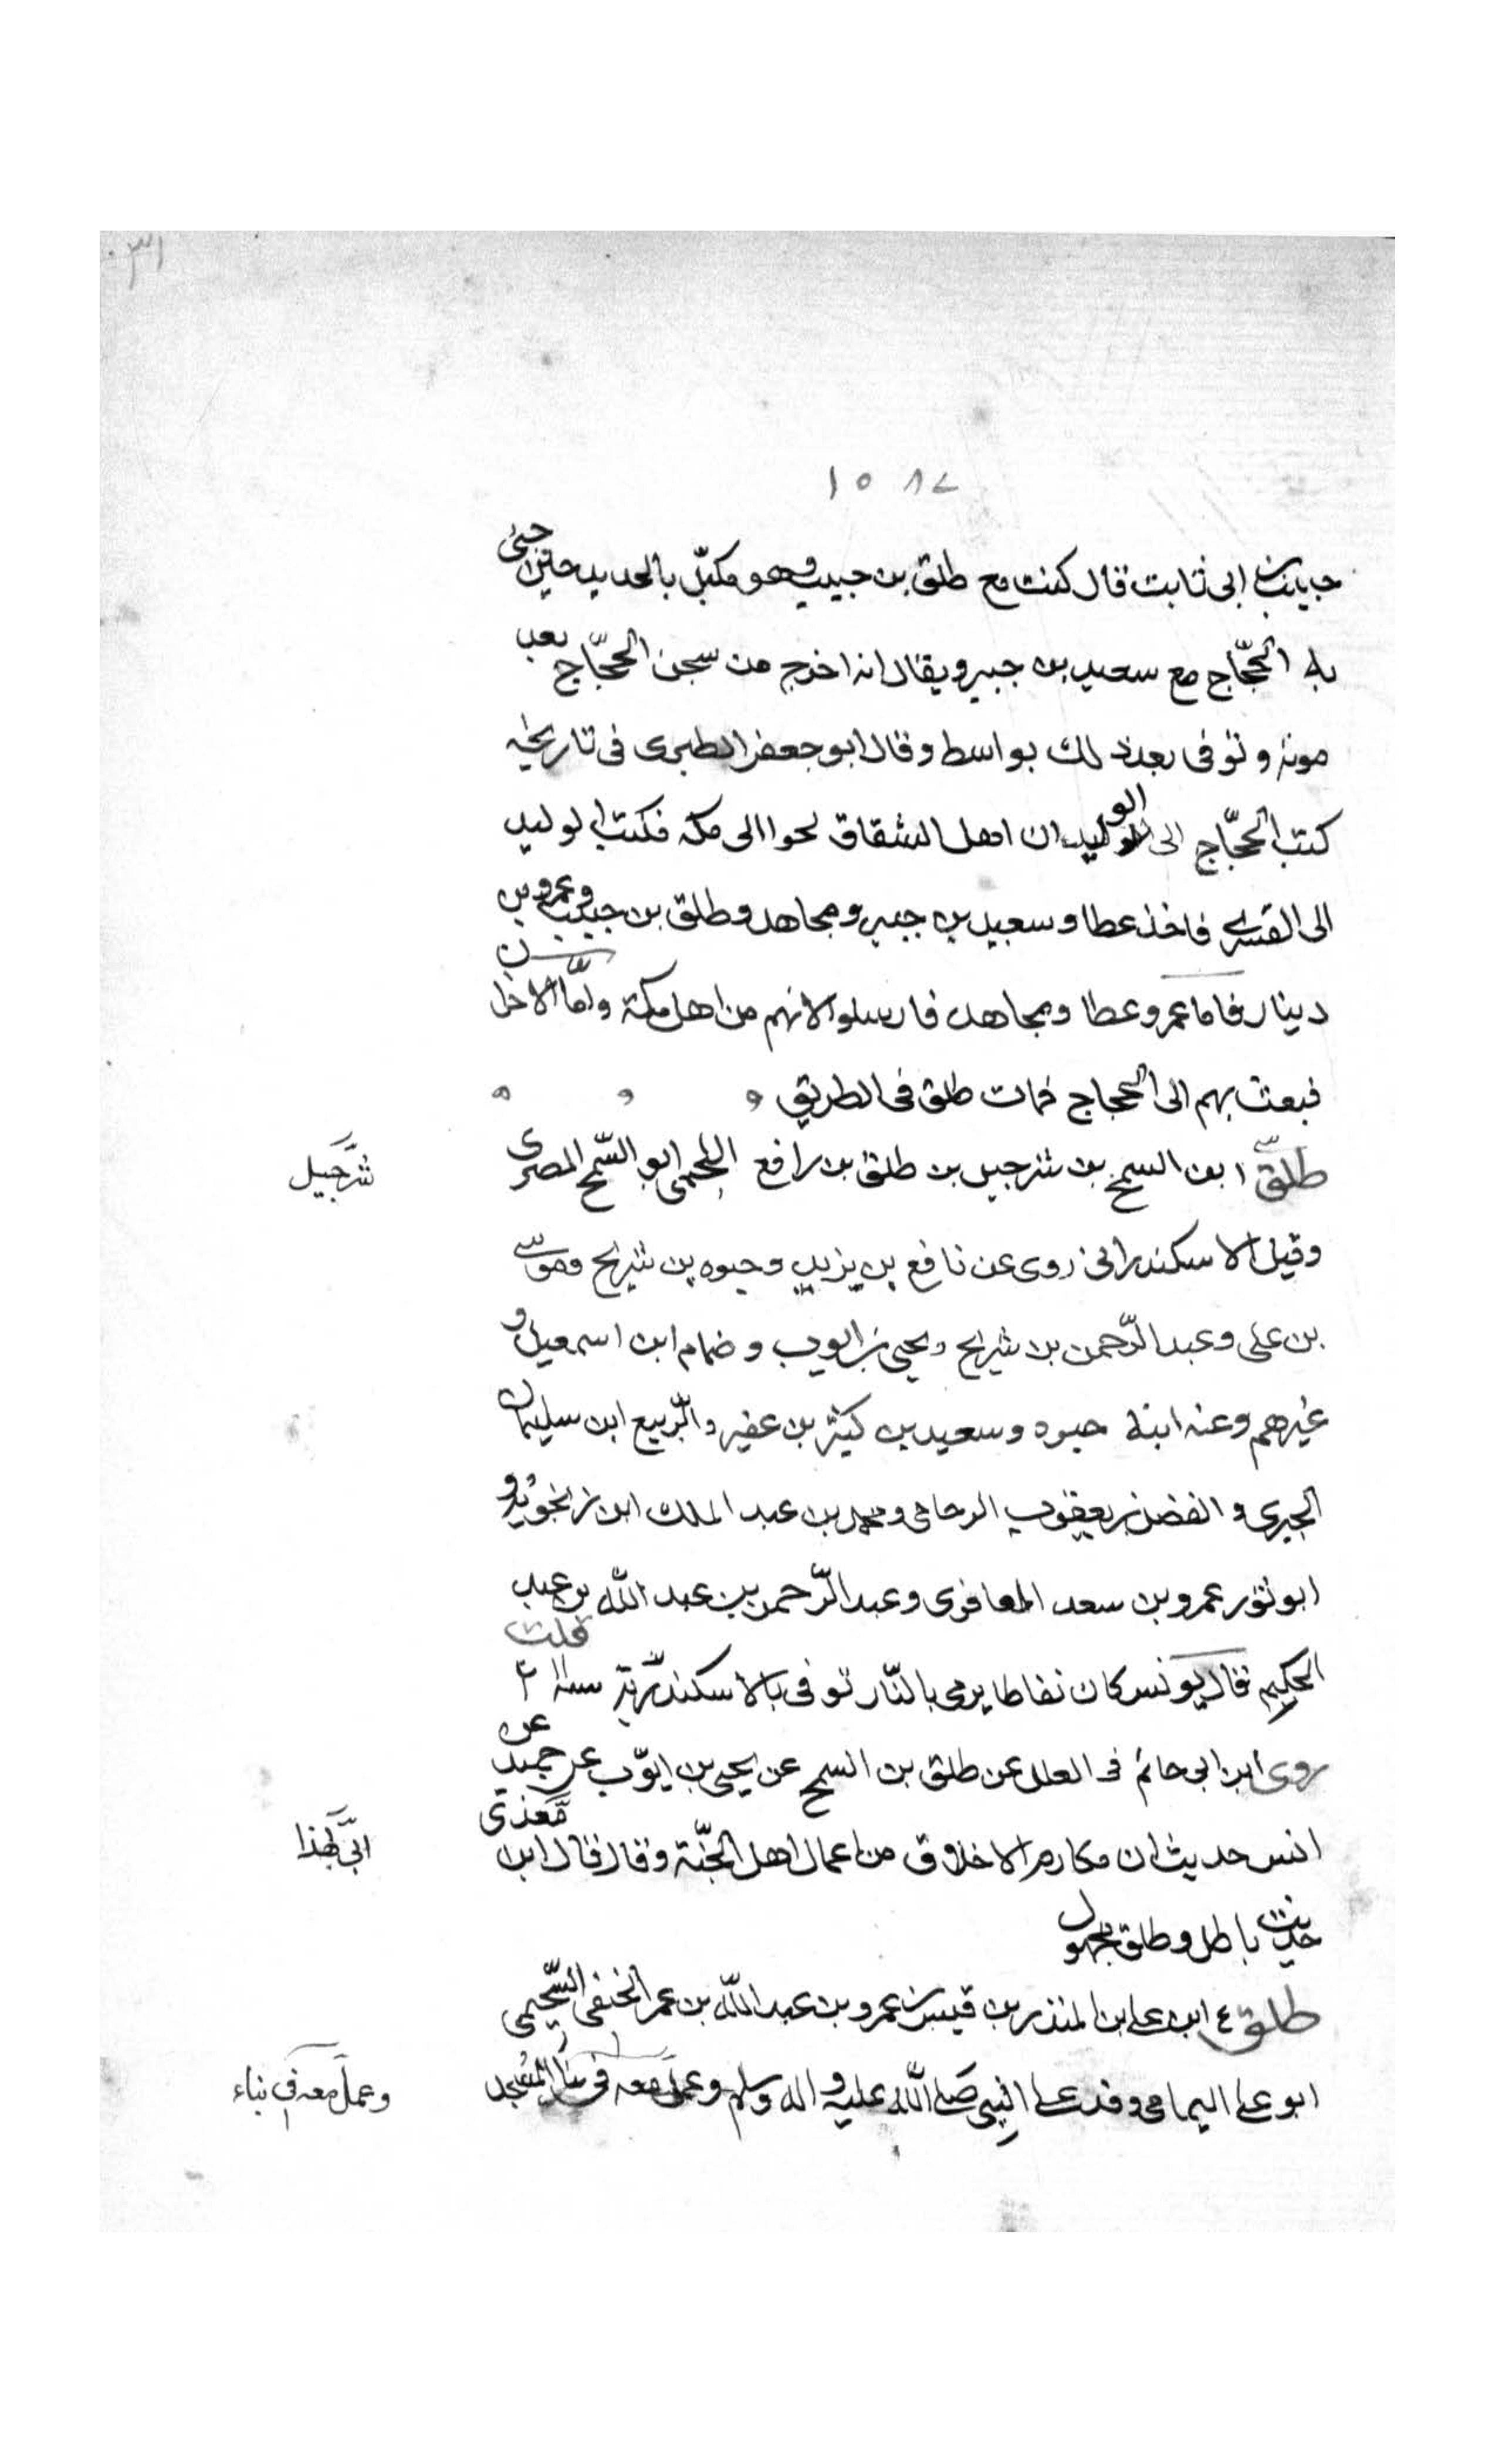 ٣١٠
١٥٨٧
حبيب بن ابى ثابت قال كنت مع طلق بن حبيب وهو مكبّل بالحديد حين جئ
به الحجّاج مع سعيد بن جبير ويقال انه اخرج من سجن الحجّاج بعد
موته وتوفى بعد ذلك بواسط وقال ابو جعفر الطبرى فى تاريخه
كتب الحجّاج الى الوليد ان اهل الشقاق لحوا الى مكة فكتب الوليد
الى القسرى فاخذ عطا وسعيد بن جبير ومجاهد وطلق بن حبيب وعمرو بن
دينار فاما عمرو وعطا ومجاهد فارسلوا لانهم من اهل مكة وامّا الاخران
فبعث بهم الى الحجاج فمات طلق فى الطريق
طلق س ابن السمح بن شرحبيل بن طلق بن رافع اللخمى ابو السّمح المصرى
شرحبيل
وقيل الاسكندرانى روى عن نافع بن يزيد وحيوه بن شريح وموسى
بن على وعبد الرّحمن بن شريح ويحيى بن ايوب وضمام ابن اسمعيل و
غيرهم وعنه ابنه حيوه وسعيد بن كثير بن عفير والرّبيع ابن سليمان
الجيزى والفضل بن يعقوب الرخامى ومحمد بن عبد الملك ابن زنجويه و
ابو ثور عمرو بن سعد المعافرى وعبد الرّحمن بن عبد الله بن عبد
الحكيم قال يونس كان نفاطا يرمى بالنّار توفى بالاسكندريّة سنة ٢١١ قلت
روى ابن ابى حاتم فى العلل عن طلق بن السمح عن يحيى بن ايوّب عن حميد عن
انس حديث ان مكارم الاخلاق من اعمال اهل الجنّة وقال قال ابن
ابى هذا
حديث باطل وطلق مجهول
طلق ٤ ابن على ابن المنذر بن قيس بن عمرو بن عبد الله بن عمر الحنفى السّحيمى
ابو على اليمامى وفد على النبى صلى الله عليه واله وسلم وعمل معه فى بنا المسجد
وعمل معه فى بناء